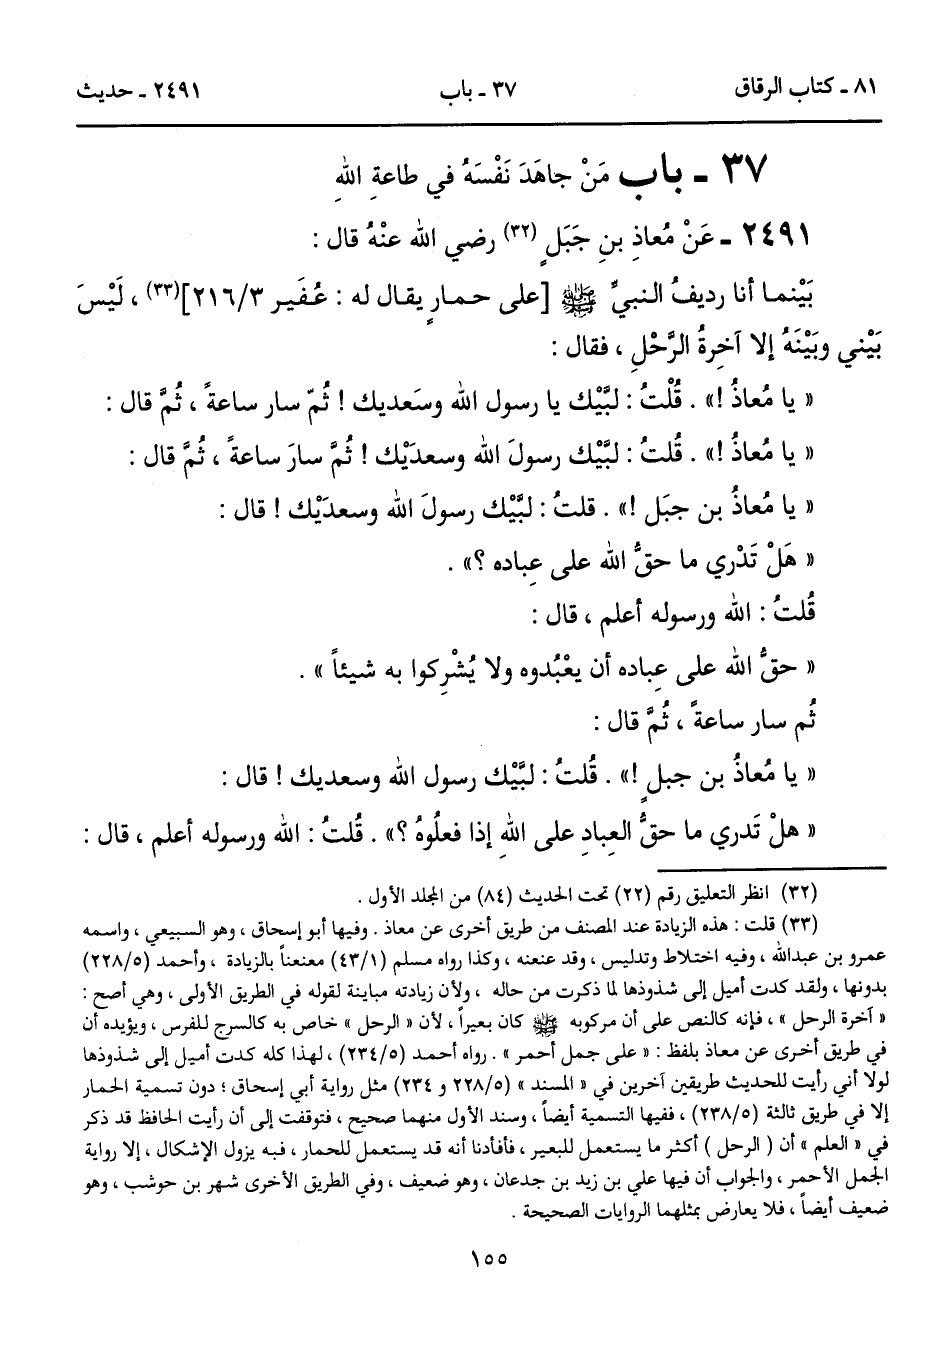 ٨١ ـ كتاب الرقاق ٣٧ ـ باب ٢٤٩١ ـ حديث
٣٧ ـ باب مَنْ جاهَدَ نَفْسَهُ في طاعةِ اللهِ
٢٤٩١ ـ عَنْ مُعاذِ بنِ جَبَلٍ (٣٢) رضي الله عنْهُ قال :
بَيْنما أنا رديفُ النبيِّ ﷺ [على حمارٍ يقال له : عُفَير ٢١٦/٣](٣٣) ، لَيْسَ
بَيْني وبَيْنَهُ إلا آخِرةُ الرَّحْلِ ، فقال :
« يا مُعاذُ !» . قُلْتُ : لبَّيْك يا رسول الله وسَعديك ! ثُمّ سار ساعةً ، ثُمَّ قال :
« يا مُعاذُ !» . قُلتُ : لبَّيْك رسولَ الله وسعدَيْك ! ثُمَّ سارَ ساعةً ، ثُمَّ قال :
« يا مُعاذُ بن جبَل !» . قلتُ : لبَّيْك رسولَ الله وسعدَيْك ! قال :
« هَلْ تَدْري ما حقُّ الله على عِباده ؟» .
قُلتُ : الله ورسوله أعلم ، قال :
« حقُّ الله على عِباده أن يعْبُدوه ولا يُشْرِكوا به شيئاً » .
ثُم سار ساعةً ، ثُمَّ قال :
« يا مُعاذُ بن جبلٍ !» . قُلتُ : لبَّيْك رسول الله وسعديك ! قال :
« هلْ تَدري ما حقُّ العِبادِ على اللهِ إذا فعلُوهُ ؟» . قُلتُ : الله ورسوله أعلم ، قال :
(٣٢) انظر التعليق رقم (٢٢) تحت الحديث (٨٤) من المجلد الأول .
(٣٣) قلت : هذه الزيادة عند المصنف من طريق أخرى عن معاذ . وفيها أبو إسحاق ، وهو السبيعي ، واسمه
عمرو بن عبدالله ، وفيه اختلاط وتدليس ، وقد عنعنه ، وكذا رواه مسلم (٤٣/١) معنعناً بالزيادة ، وأحمد (٢٢٨/٥)
بدونها ، ولقد كدت أميل إلى شذوذها لما ذكرت من حاله ، ولأن زيادته مباينة لقوله في الطريق الأولى ، وهي أصح :
« آخرة الرحل » ، فإنه كالنص على أن مركوبه ﷺ كان بعيراً ، لأن « الرحل » خاص به كالسرج للفرس ، ويؤيده أن
في طريق أخرى عن معاذ بلفظ : « على جمل أحمر » . رواه أحمد (٢٣٤/٥) ، لهذا كله كدت أميل إلى شذوذها
لولا أني رأيت للحديث طريقين آخرين في « المسند » (٢٢٨/٥ و ٢٣٤) مثل رواية أبي إسحاق ؛ دون تسمية الحمار
إلا في طريق ثالثة (٢٣٨/٥) ، ففيها التسمية أيضاً ، وسند الأول منهما صحيح ، فتوقفت إلى أن رأيت الحافظ قد ذكر
في « العلم » أن ( الرحل ) أكثر ما يستعمل للبعير ، فأفادنا أنه قد يستعمل للحمار ، فبه يزول الإشكال ، إلا رواية
الجمل الأحمر ، والجواب أن فيها علي بن زيد بن جدعان ، وهو ضعيف ، وفي الطريق الأخرى شهر بن حوشب ، وهو
ضعيف أيضاً ، فلا يعارض بمثلهما الروايات الصحيحة .
١٥٥